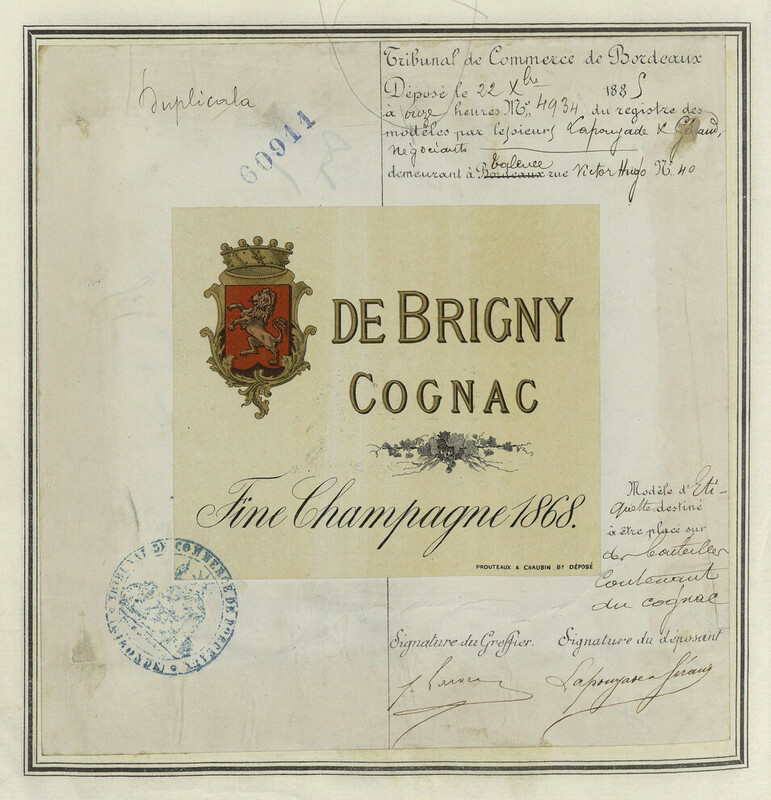 Duplicata
60911
Tribunal de Commerce de Bordeaux
Déposé le 22 Xbre 1885
à onze heures No. 4934 du registre des
modèles par les sieurs Lapouyade & Géraud,
Négociants
Talence
demeurant à Bordeaux rue Victor Hugo No. 40
DE BRIGNY
COGNAC
Fine Champagne 1868.
PROUTEAUX & CHAUBIN Bx DÉPOSÉ
Modèle d'Eti-
quette destiné
à être placé sur
des bouteilles
Contenant
du cognac
TRIBUNAL DE COMMERCE DE BORDEAUX
(GIRONDE)
Signature du Greffier. Signature du déposant
Lapouyade & Géraud